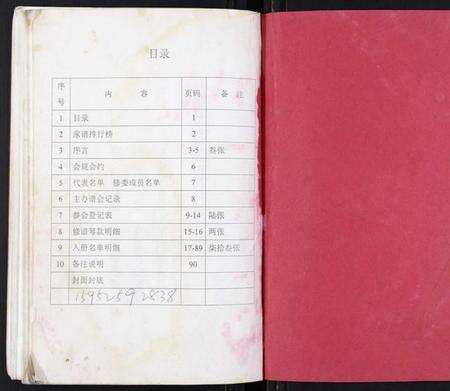 目录
序号 内容 页码 备注
1 目录 1
2 家谱排行榜 2
3 序言 3-5 叁张
4 会规会约 6
5 代表名单 修委成员名单 7
6 主办谱会记录 8
7 参会登记表 9-14 陆张
8 修谱筹款明细 15-16 两张
9 入册名单明细 17-89 柒拾叁张
10 备注说明 90
封面封底
15952592838